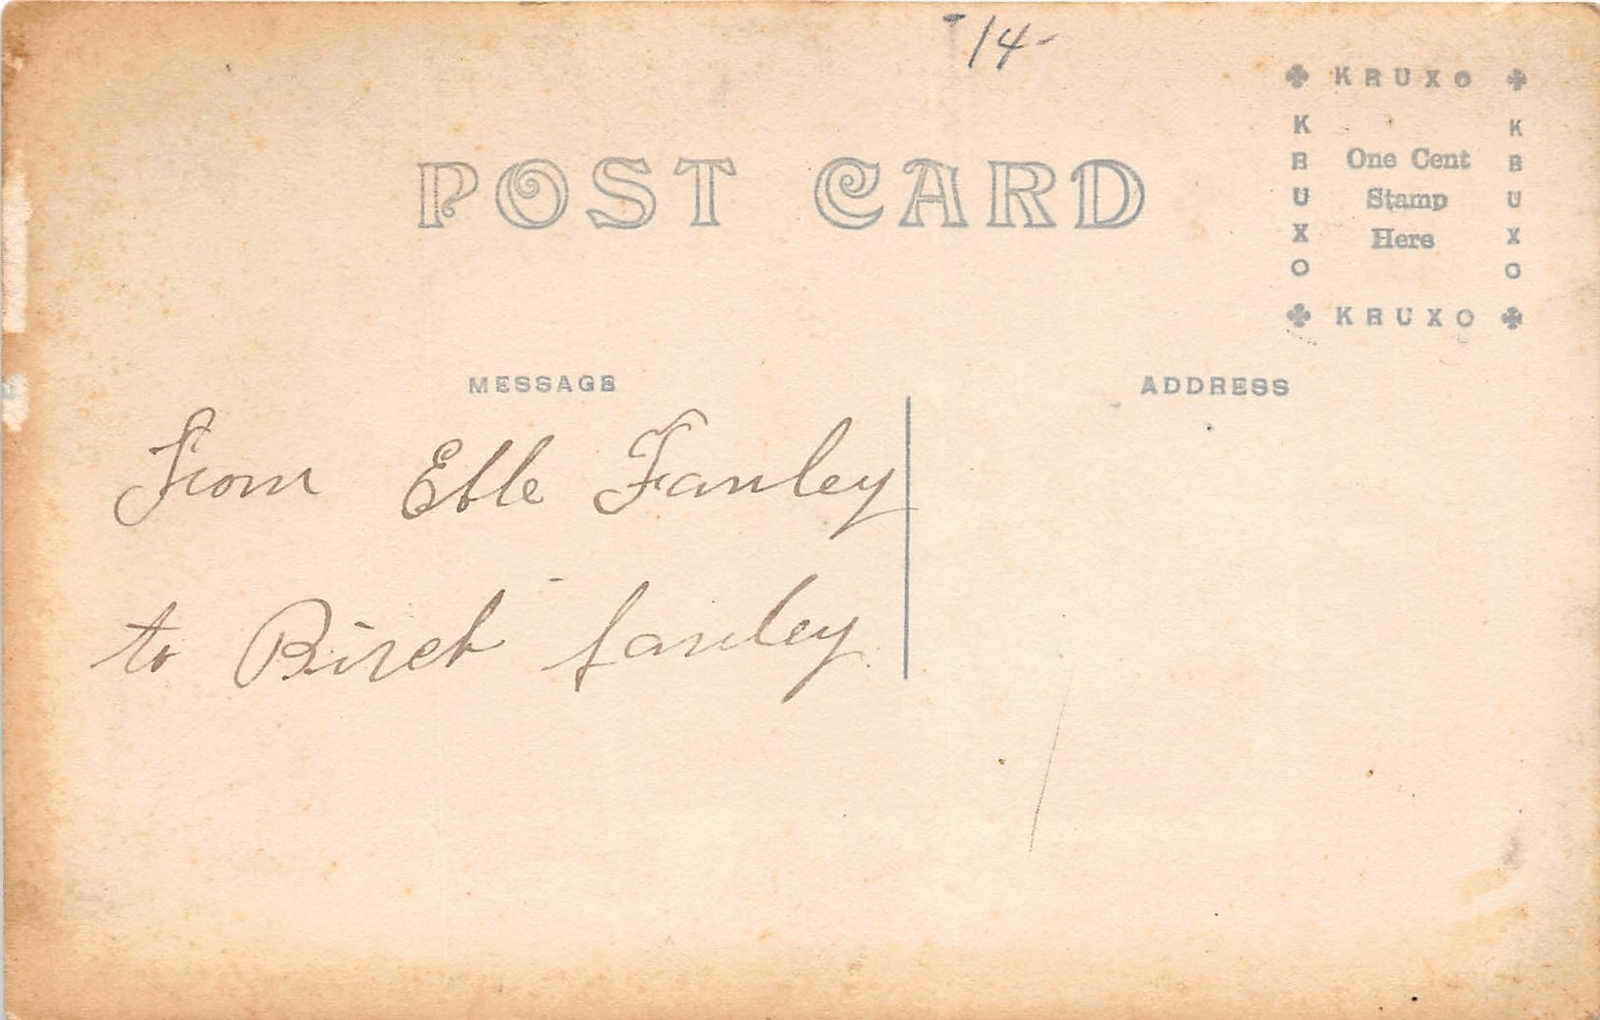 14-
KRUXO
KRUXO
KRUXO
One Cent
Stamp
Here
KRUXO
POST CARD
MESSAGE
ADDRESS
From Effe Fanley
to Birch fanley